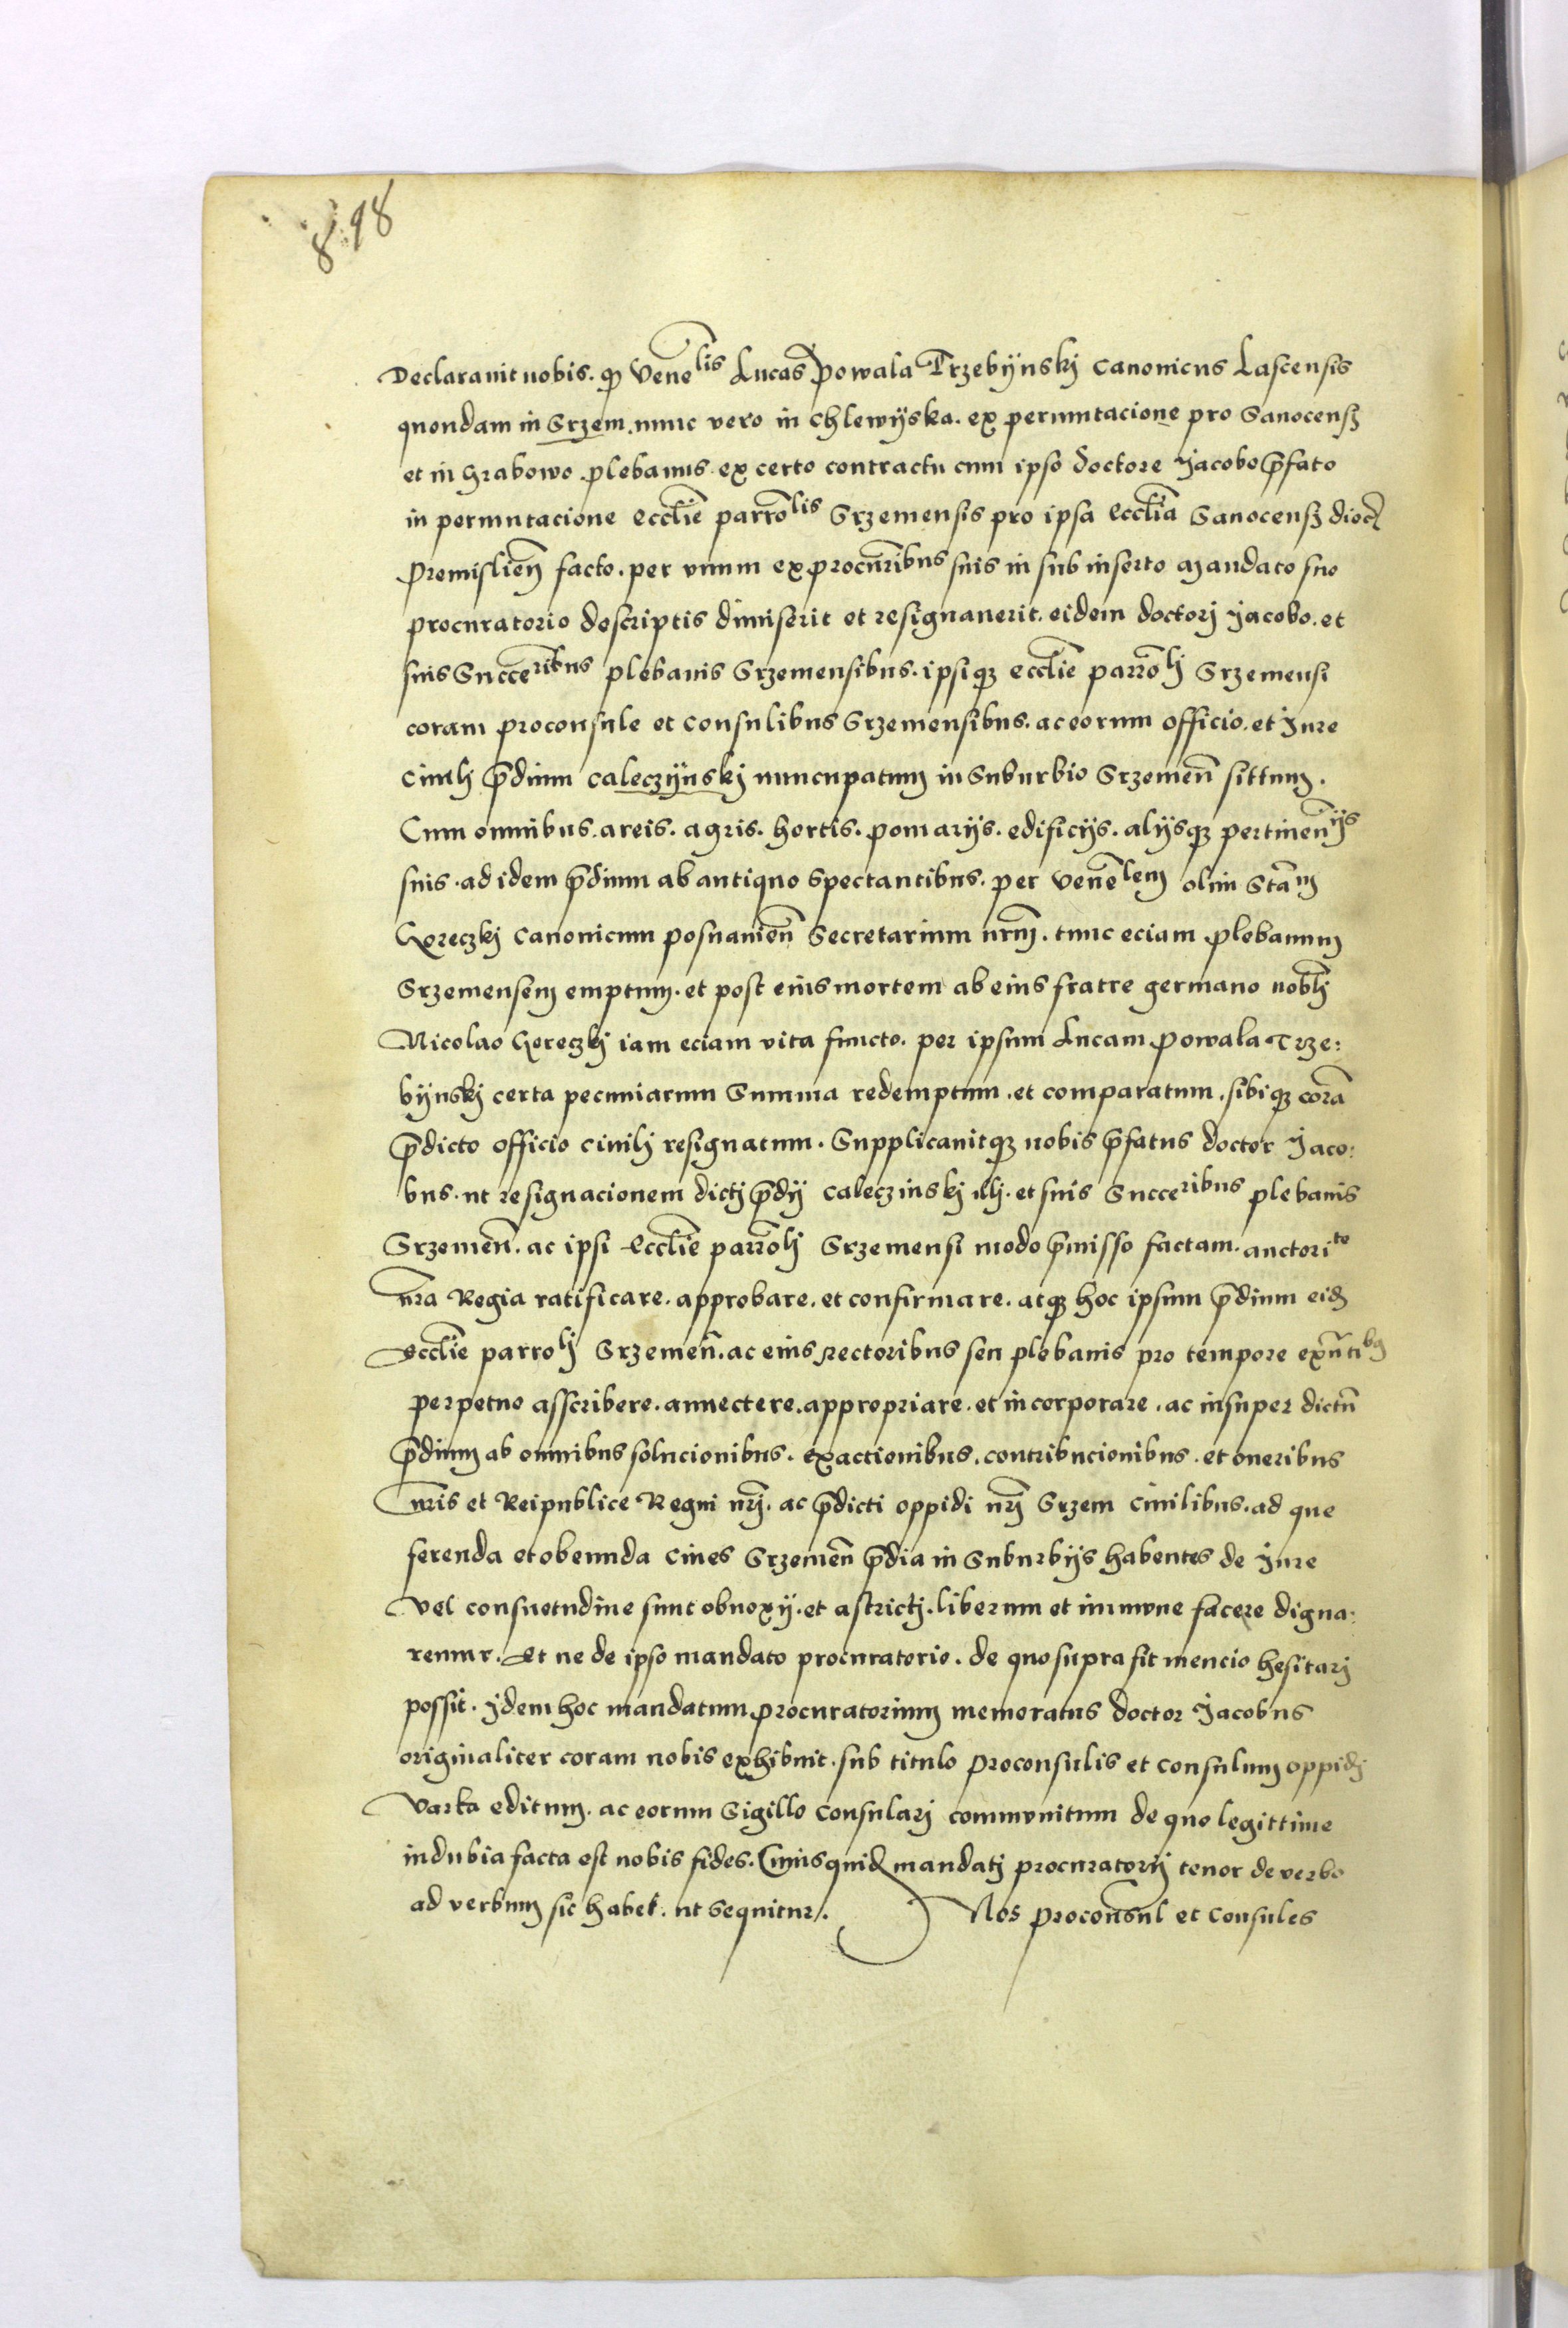 8.98
Declarauit nobis. qp Venelis Lucas Powala Trzebÿnskj canonicus Lascensis
quondam in Srzem. nunc vero in Chlewÿska. ex permutacione pro Sanocensz
et in Grabowo plebanus. ex certo contractu cum ipso doctore Jacobo p̄fato
in permutacione eccl̄ie parrōlis Srzemensis pro ipsa eccl̄ia Sanocensz dioc̄
Premislien̄ facto. per vnum ex procur̄ibus suis in sub inserto mandato suo
procuratorio descriptis dimiserit et resignauerit. eidem doctorj Jacobo. et
suis Succeribus plebanis Srzemensibus. ipsiqz eccl̄ie parrōlj Srzemensi
coram proconsule et consulibus Srzemensibus. ac eorum officio. et Jure
ciuilj p̄dium Caleczÿnskj nuncupatum in Suburbio Srzemen̄ sittum.
Cum omnibus. areis. agris. hortis. pomarÿs. edificÿs. alÿsqz pertinen̄ÿs
suis. ad idem p̄dium ab antiquo spectantibus. per Venēlem olim Stām
Goreczkj canonicum posnanien̄ Secretarium nr̄m. tunc eciam plebanum
Srzemensem emptum. et post eius mortem ab eius fratre germano nobl̄j
Nicolao Goreczkj iam eciam vita functo. per ipsum Lucam Powala Trze:
bÿnskj certa pecuniarum Summa redemptum. et comparatum. sibiqz corā
p̄dicto officio ciuilj resignatum. Supplicauitqz nobis p̄fatus doctor Jaco:
bus. ut resignacionem dictj p̄dÿ Caleczinskj illj. et suis Succeribus plebanis
Srzemen̄. ac ipsi Eccl̄ie parrōlj Srzemensi modo p̄misso factam. auctorite
nr̄a Regia ratificare. approbare. et confirmare. atqz hoc ipsum p̄dium eidz
Eccl̄ie parrolj Srzemen̄. ac eius rectoribus seu plebanis pro tempore exn̄tibg
perpetuo asscribere. annectere. appropriare. et incorporare. ac insuper dictū
p̄dium ab omnibus solucionibus. exactionibus. contribucionibus. et oneribus
nr̄is et Reipublice Regni nr̄j. ac p̄dicti oppidi nr̄j Srzem ciuilibus. ad que
ferenda et obeunda ciues Srzemen̄ p̄dia in Suburbÿs habentes de Jure
vel consuetudine sunt obnoxÿ. et astrictj. liberum et immune facere digna:
remur. Et ne de ipso mandato procuratorio. de quo supra fit mencio hesitarj
possit. Jdem hoc mandatum procuratorium memoratus doctor Jacobus
originaliter coram nobis exhibuit. sub titulo proconsulis et consulum oppidj
Varka editum. ac eorum Sigillo consularj communitum de quo legittime
indubia facta est nobis fides. Cuius quidz mandatj procuratorÿ tenor de verbo
ad verbum sic habet. ut sequitur/. Nos proconsul et consules